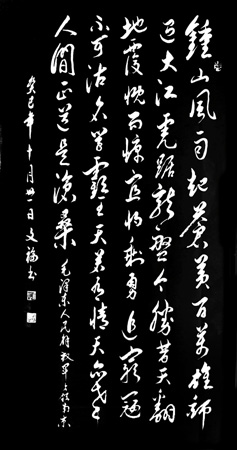 鍾山風雨起蒼黄百萬雄師
过大江虎踞龍盤今勝昔天翻
地覆慨而慷宜将剩勇追窮寇
不可沽名学霸王天若有情天亦老
人間正道是滄桑 毛澤東人民解放軍占領南京
癸巳年十月卅一日文福书